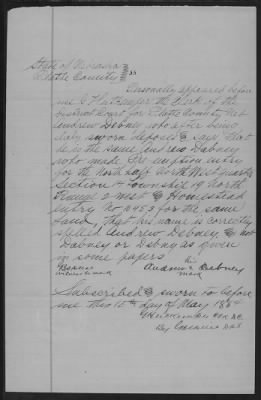 State of Nebraska
Platte County } ss
Personally appeared before
me G Heitkemper the Clerk of the
District Court for Platte County, Neb
Andrew Dabney who after being
duly sworn deposes & says, that
he is the same Andrew Dabney
who made Pre emption entry
for the North half North West quarter
Section Township 19 North
Range 2 west & Homestead
entry No for the same
land, that his name is correctly
spelled Andrew Debney & not
Dabney or Debny as given
in some papers
his
Andrew Debney
mark
witness to mark
Subscribed & sworn to before
me this 15th day of May 1884
G Heitkemper Clk D.C.
By Dep